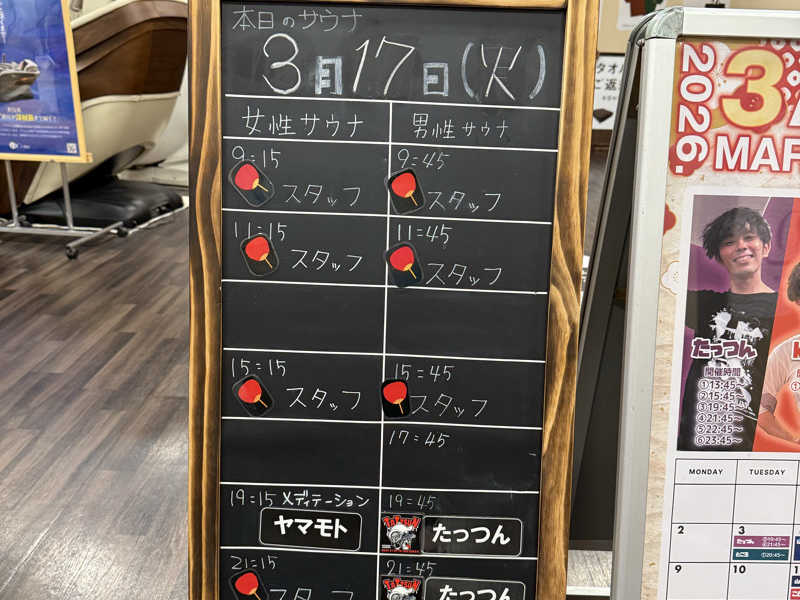 本日のサウナ
3月17日(火)
女性サウナ 男性サウナ
9:15 9:45
スタッフ スタッフ
11:15 11:45
スタッフ スタッフ
15:15 15:45
スタッフ スタッフ
17:45
19:15 メディテーション 19:45
ヤマモト たっつん
21:15 21:45
スタッフ たっつん
2026.
3
MAR
たっつん
開催時間
①13:45~
②15:45~
③19:45~
④21:45~
⑤22:45~
⑥23:45~
MONDAY TUESDAY
2 3
9 10